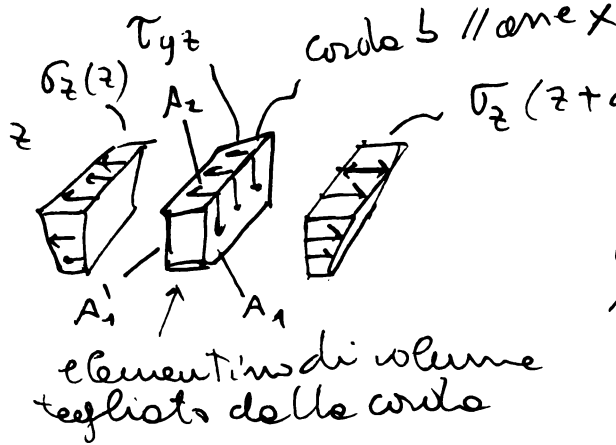 τyz
corda b // asse x
σz(z)
A2
σz (z+d
z
A'1
A1
elementino di volume
tagliato dalla corda